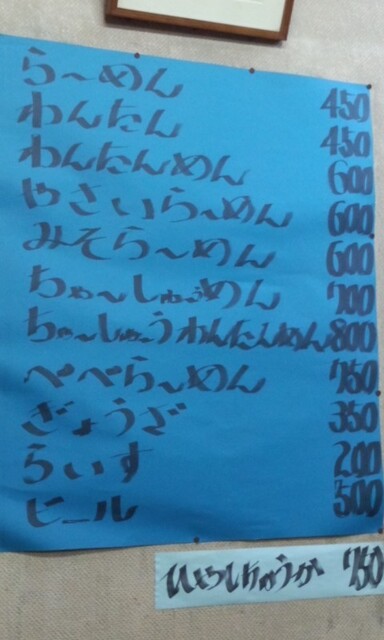 らーめん 450
わんたん 450
わんたんめん 600
やさいらーめん 600
みそらーめん 600
ちゃーしゅーめん 700
ちゃーしゅうわんたんめん 800
ぺぺらーめん 750
ぎょうざ 350
らいす 200
ビール 500
ひやしちゅうか 750